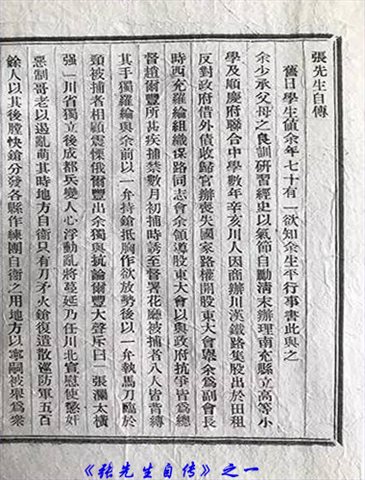 張先生自傳
舊日學生値余年七十有一欲知余生平行事書此與之
余少承父母之良訓硏習經史以氣節自勵清末辦理南充縣立高等小
學及順慶府聯合中學數年辛亥川人因商辦川漢鐵路集股出於田租
反對政府借外債收歸官辦喪失國家路權開股東大會舉余爲副會長
時西充羅綸組織保路同志會余領導股東大會以與政府抗爭皆爲總
督趙爾豐所甚疾捕禁數月初捕時誘至督署花廳被捕者八人皆背縛
其手獨羅綸與余前以一弁持鎗抵胸作欲放勢後以一弁執馬刀臨於
頸被捕者相顧震慄俄爾豐出余獨與抗論爾豐大聲斥曰一張瀾太橫
强一川省獨立後成都兵變人心浮動亂將蔓延乃任川北宣慰使懲奸
惡制哥老以遏亂萌其時地方自衛只有刀矛火鎗復遣散巡防軍五百
餘人以其後膛快鎗分發各縣作練團自衛之用地方以寧嗣被舉爲衆
《张先生自传》之一